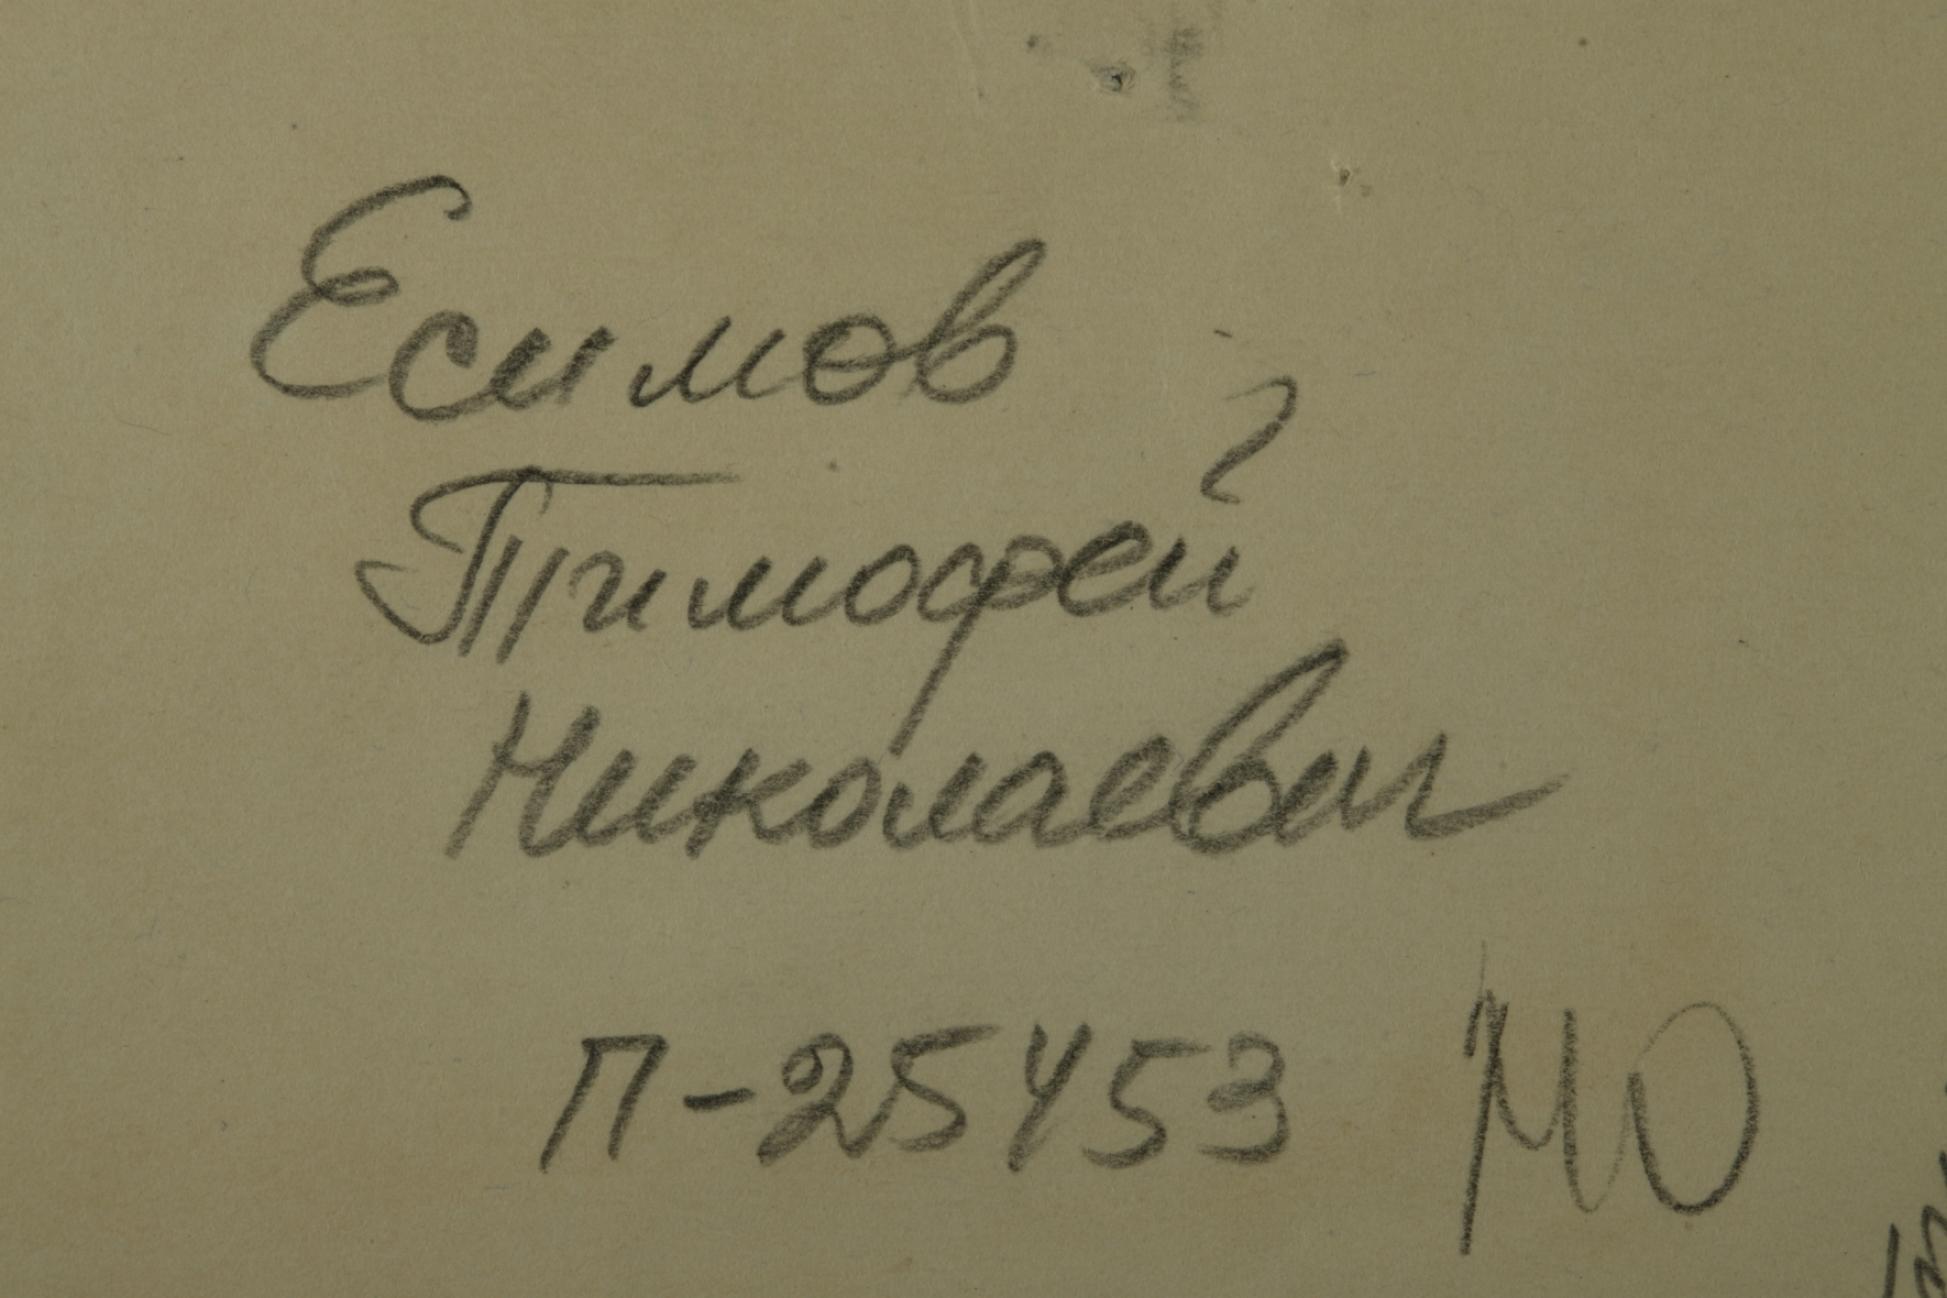 Есимов
Тимофей
Николаевич
П-25453 МО